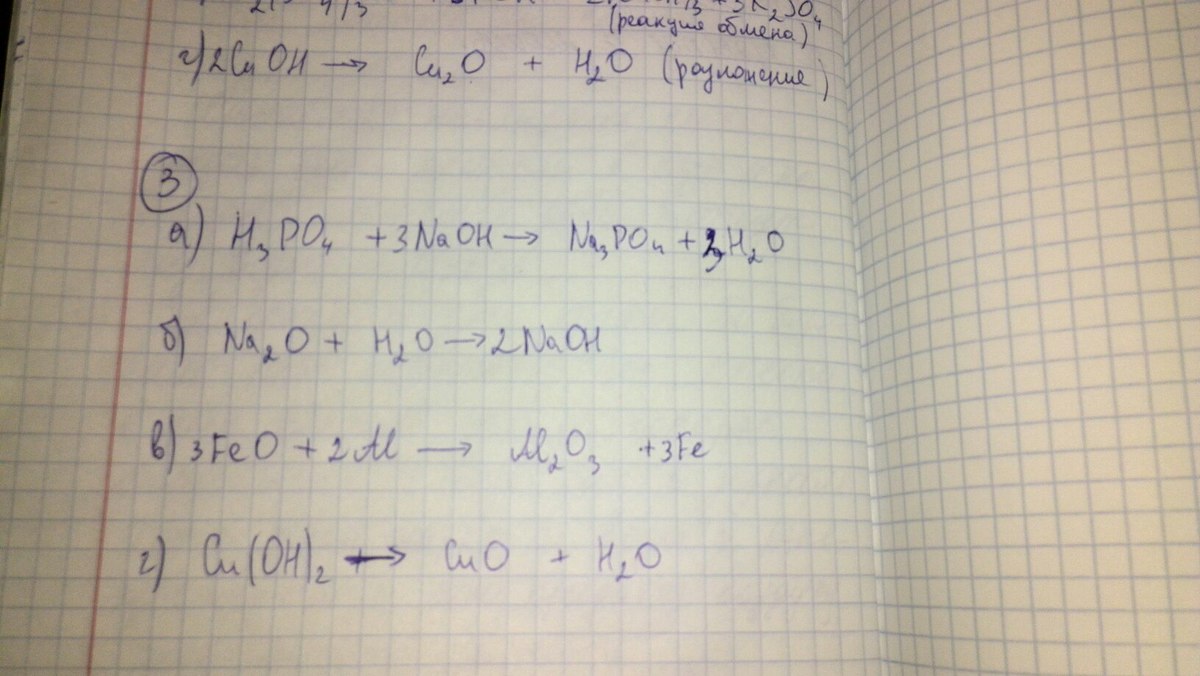 + 3K₂SO₄
(реакция обмена)
г) 2CuOH → Cu₂O + H₂O (разложение)
3
а) H₃PO₄ + 3NaOH → Na₃PO₄ + 3H₂O
б) Na₂O + H₂O → 2NaOH
в) 3FeO + 2Al → Al₂O₃ + 3Fe
г) Cu(OH)₂ → CuO + H₂O